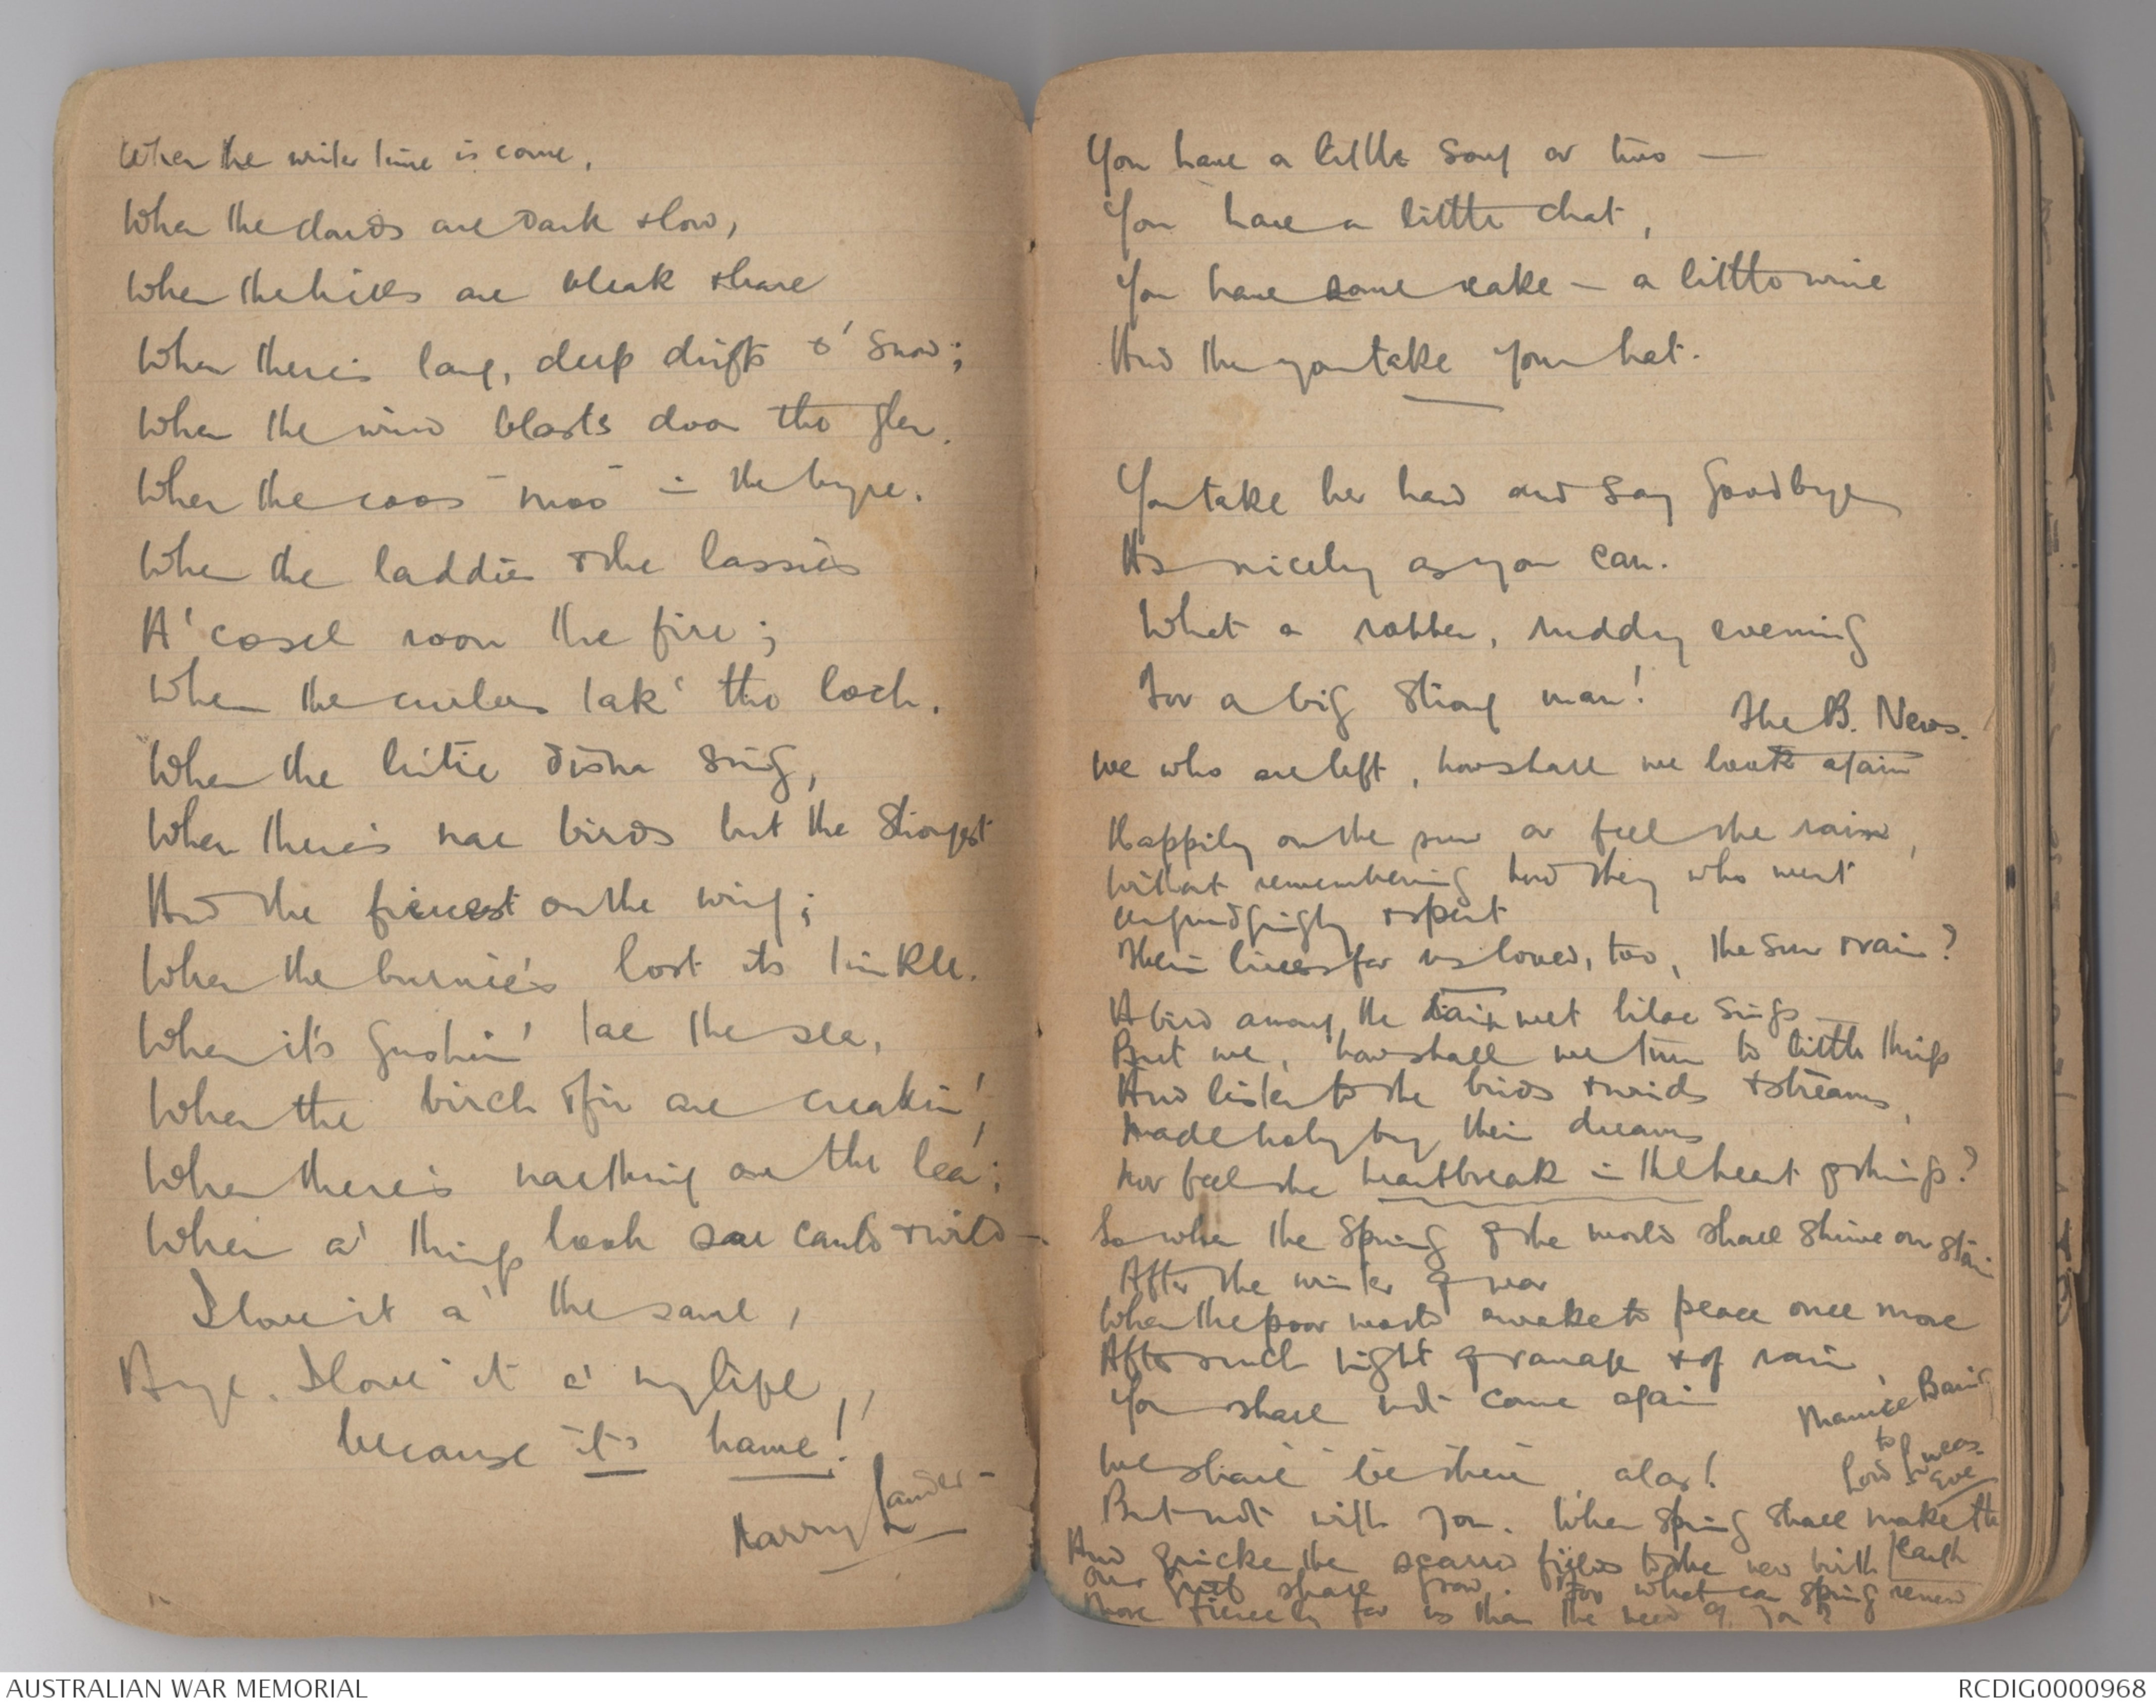 When the winter time is come,
When the clouds are dark & low,
When the hills are bleak & bare
When there's lang, deep drifts o' snow;
When the wind blasts doon the glen.
When the coos "moo" in the byre.
When the laddies & the lassies
A' cosel roon the fire;
When the curlers tak' the loch.
When the lintie disna sing,
When there's nae birds but the strongest
And the fiercest on the wing;
When the burnie's lost its tinkle.
When it's gushin' tae the sea,
When the birch & fir are creakin',
When there's naething on the lea';
When a' things look sae cauld & wild -
I love it a' the same,
Aye. I love it a' my life,
because it's hame!
Harry Lauder -
You have a little song or two —
You have a little chat,
You have some cake - a little wine
And then you take your hat.
You take her hand and say Goodbye
As nicely as you can.
What a rotten, muddy evening
For a big strong man!
The B. News.
We who are left, how shall we look again
Happily on the sun or feel the rain,
Without remembering how they who went
ungrudgingly & spent
Their lives for us loved, too, the sun & rain?
A bird among the rain wet lilac sings —
But we, how shall we turn to little things
And listen to the birds & winds & streams,
Made holy by their dreams
Nor feel the heartbreak in the heart of things?
So when the Spring of the world shall shrive our stain
After the winter of war
When the poor world awakes to peace once more
After such night of ravage & of rain,
You shall not come again
Maurice Baring
to
Lord Lucas.
We shall be there, alas!
But not with you. When Spring shall make the
earth
And quicken the scarred fields to the new birth
Our grief shall grow. For what can Spring renew
More fiercely for us than the need of you?
AUSTRALIAN WAR MEMORIAL
RCDIG0000968